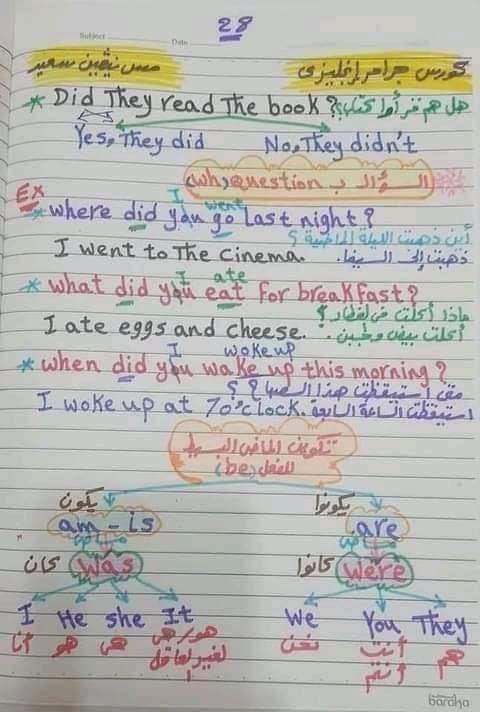 28
Subject
Date
كورس جرامر إنجليزى
مس نيڤين سعيد
* Did They read The book? هل هم قرأوا كتاب؟
Yes, They did No, They didn't
السؤال ب Question (wh)
Ex
I went
* where did you go last night?
أين ذهبت الليلة الماضية ؟
I went to The cinema. ذهبت إلى السينما.
I ate
* what did you eat for breakfast?
ماذا أكلت فى الفطار ؟
I ate eggs and cheese. أكلت بيض وجبن.
I woke up
* when did you wake up this morning?
متى استيقظت هذا الصباح ؟
I woke up at 7o'clock. استيقظت الساعة السابعة
تكوين الماضى البسيط
للفعل (be)
يكون يكونوا
am - is are
ماضى ماضى
كان was كانوا were
I He she It We You They
أنا هو هى هو/هى نحن أنت هم
لغير العاقل أنتم
baraka